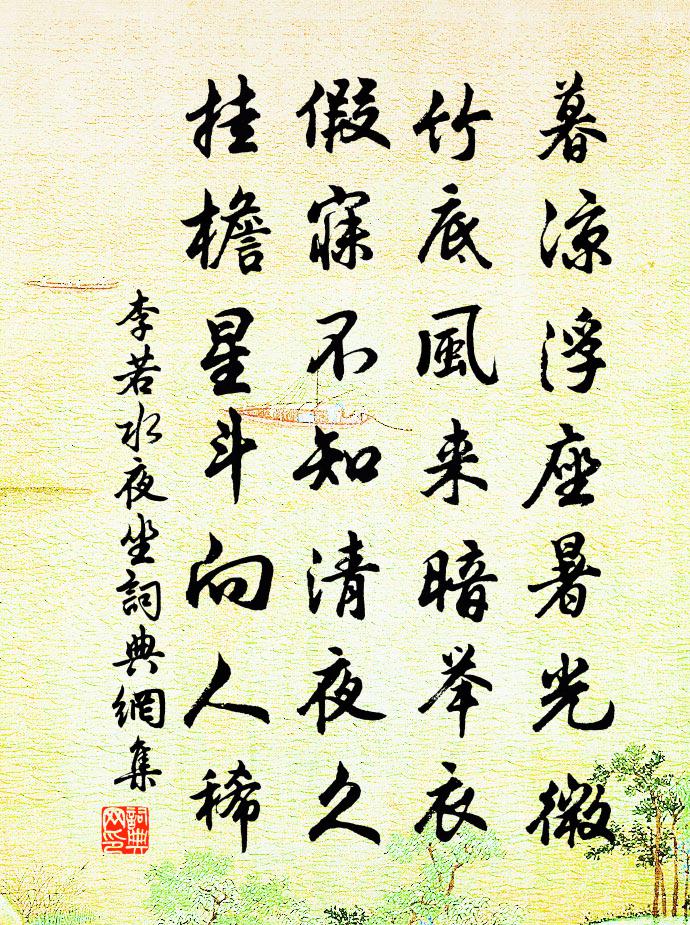 暮涼浮座暑光微
竹底風来暗举衣
假寐不知清夜久
挂檐星斗向人稀
李若水夜坐詞典網集
詞典網印